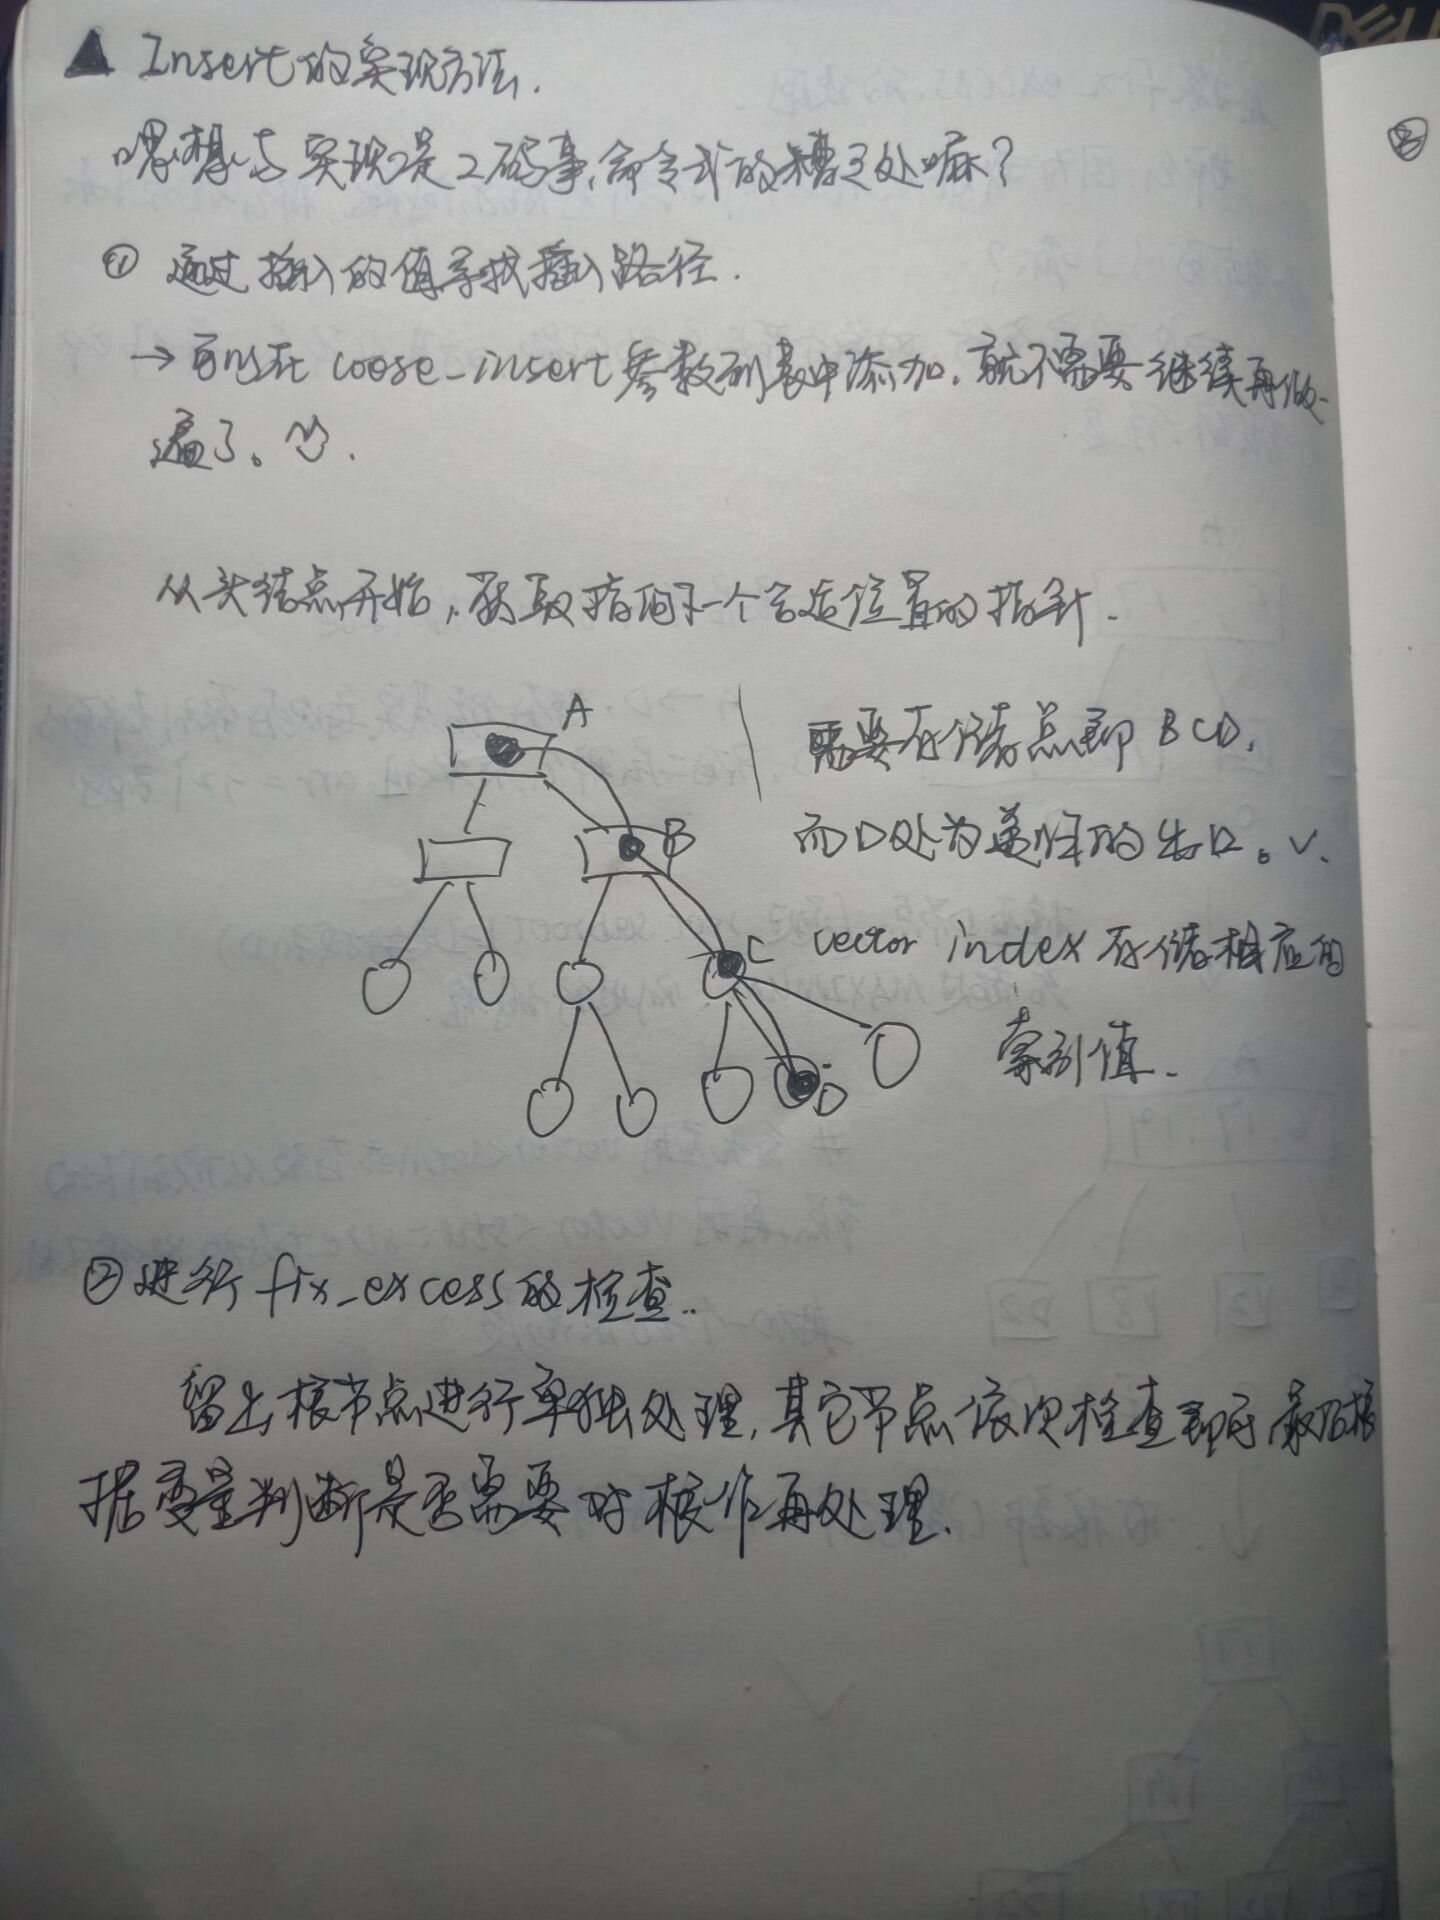 ▲ Insert的实现方法.
嘿,想与实现是2码事,命令式的糟糕处嘛?
① 通过插入的值寻找插入路径.
→可以在 loose_insert参数列表中添加,就不需要继续再做一
遍了。
从头结点开始,获取指向下一个合适位置的指针.
A
需要存储点即 BCD,
B
而D处为递归的出口。√.
C
vector index存储相应的
索引值.
D
②进行 fix_excess的检查..
留出根节点进行单独处理,其它节点依次检查即可 最后根
据变量判断是否需要对根作再处理.
DELL